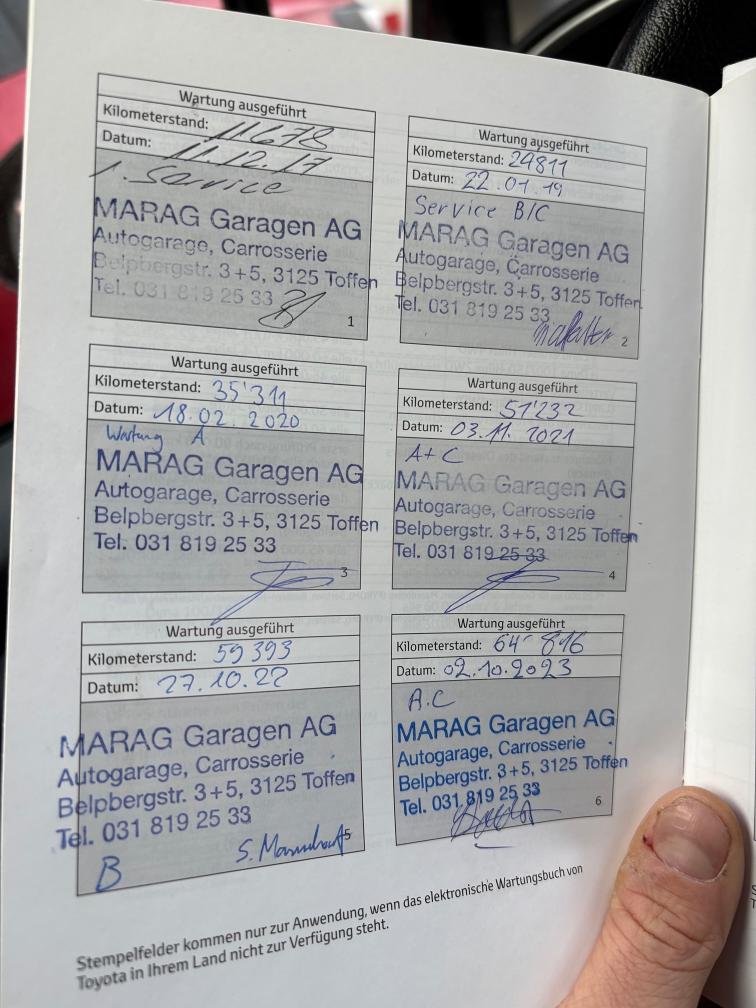 Wartung ausgeführt
Kilometerstand: 11678
Datum: 11.12.17
1. Service
MARAG Garagen AG
Autogarage, Carrosserie
Belpbergstr. 3+5, 3125 Toffen
Tel. 031 819 25 33
1
Wartung ausgeführt
Kilometerstand: 24811
Datum: 22.01.19
Service B/C
MARAG Garagen AG
Autogarage, Carrosserie
Belpbergstr. 3+5, 3125 Toffen
Tel. 031 819 25 33
2
Wartung ausgeführt
Kilometerstand: 35'311
Datum: 18.02.2020
Wartung A
MARAG Garagen AG
Autogarage, Carrosserie
Belpbergstr. 3+5, 3125 Toffen
Tel. 031 819 25 33
3
Wartung ausgeführt
Kilometerstand: 51'232
Datum: 03.11.2021
A+C
MARAG Garagen AG
Autogarage, Carrosserie
Belpbergstr. 3+5, 3125 Toffen
Tel. 031 819 25 33
4
Wartung ausgeführt
Kilometerstand: 59393
Datum: 27.10.22
MARAG Garagen AG
Autogarage, Carrosserie
Belpbergstr. 3+5, 3125 Toffen
Tel. 031 819 25 33
B S.
5
Wartung ausgeführt
Kilometerstand: 64'816
Datum: 02.10.2023
A.C
MARAG Garagen AG
Autogarage, Carrosserie
Belpbergstr. 3+5, 3125 Toffen
Tel. 031 819 25 33
6
Stempelfelder kommen nur zur Anwendung, wenn das elektronische Wartungsbuch von
Toyota in Ihrem Land nicht zur Verfügung steht.